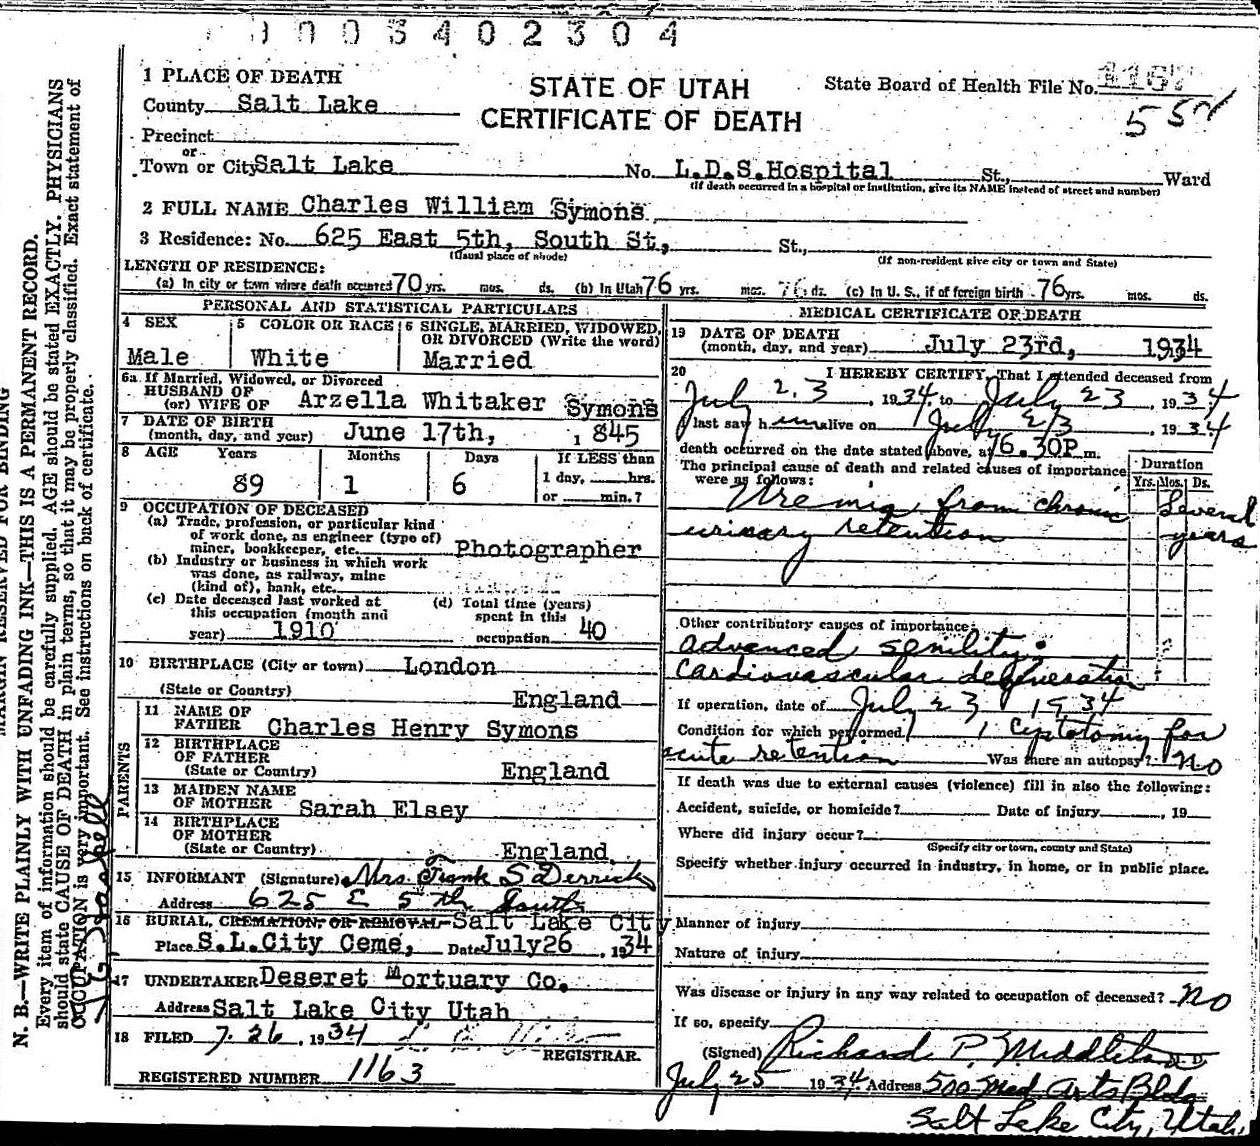 0003402304
1 PLACE OF DEATH
STATE OF UTAH
CERTIFICATE OF DEATH
State Board of Health File No. 1167
557
County Salt Lake
Precinct
or
Town or City Salt Lake No. L.D.S.Hospital St., Ward
(If death occurred in a hospital or institution, give its NAME instead of street and number)
2 FULL NAME Charles William Symons
3 Residence: No. 625 East 5th, South St., St.,
(Usual place of abode) (If non-resident give city or town and State)
LENGTH OF RESIDENCE:
(a) In city or town where death occurred 70 yrs. mos. ds. (b) In Utah 76 yrs. mos. 76 ds. (c) In U. S., if of foreign birth 76 yrs. mos. ds.
PERSONAL AND STATISTICAL PARTICULARS
4 SEX
Male
5 COLOR OR RACE
White
6 SINGLE, MARRIED, WIDOWED, OR DIVORCED (Write the word)
Married
6a If Married, Widowed, or Divorced
HUSBAND OF
(or) WIFE OF Arzella Whitaker Symons
7 DATE OF BIRTH
(month, day, and year) June 17th, 1845
8 AGE Years Months Days If LESS than
89 1 6 1 day, hrs.
or min.?
9 OCCUPATION OF DECEASED
(a) Trade, profession, or particular kind
of work done, as engineer (type of)
miner, bookkeeper, etc. Photographer
(b) Industry or business in which work
was done, as railway, mine
(kind of), bank, etc.
(c) Date deceased last worked at
this occupation (month and
year) 1910
(d) Total time (years)
spent in this
occupation 40
10 BIRTHPLACE (City or town) London
(State or Country) England
PARENTS
11 NAME OF
FATHER Charles Henry Symons
12 BIRTHPLACE
OF FATHER
(State or Country) England
13 MAIDEN NAME
OF MOTHER Sarah Elsey
14 BIRTHPLACE
OF MOTHER
(State or Country) England.
15 INFORMANT (Signature) Mrs. Frank S Derrick
Address 625 E 5th South
16 BURIAL, CREMATION, OR REMOVAL Salt Lake City
Place S.L.City Ceme, Date July26, 1934
17 UNDERTAKER Deseret Mortuary Co.
Address Salt Lake City Utah
18 FILED 7-26, 1934
REGISTRAR.
REGISTERED NUMBER 1163
MEDICAL CERTIFICATE OF DEATH
19 DATE OF DEATH
(month, day, and year) July 23rd, 1934
20 I HEREBY CERTIFY, That I attended deceased from
July 23, 1934 to July 23, 1934
I last saw him alive on July 23, 1934
death occurred on the date stated above, at 6.30P m.
The principal cause of death and related causes of importance
were as follows:
Duration
Yrs. Mos. Ds.
Uremia from chronic
urinary retention
Several
years
Other contributory causes of importance:
advanced senility.
cardiovascular degeneration
If operation, date of July 23 1934
Condition for which performed Cystotomy for
acute retention Was there an autopsy? No
If death was due to external causes (violence) fill in also the following:
Accident, suicide, or homicide? Date of injury , 19
Where did injury occur?
(Specify city or town, county and State)
Specify whether injury occurred in industry, in home, or in public place.
Manner of injury
Nature of injury
Was disease or injury in any way related to occupation of deceased? No
If so, specify
(Signed) Richard P. Middleton M. D.
July 25 1934 Address 500 Med Arts Bldg
Salt Lake City, Utah,
MARGIN RESERVED FOR BINDING
N. B.—WRITE PLAINLY WITH UNFADING INK—THIS IS A PERMANENT RECORD.
Every item of information should be carefully supplied. AGE should be stated EXACTLY. PHYSICIANS
should state CAUSE OF DEATH in plain terms, so that it may be properly classified. Exact statement of
OCCUPATION is very important. See instructions on back of certificate.